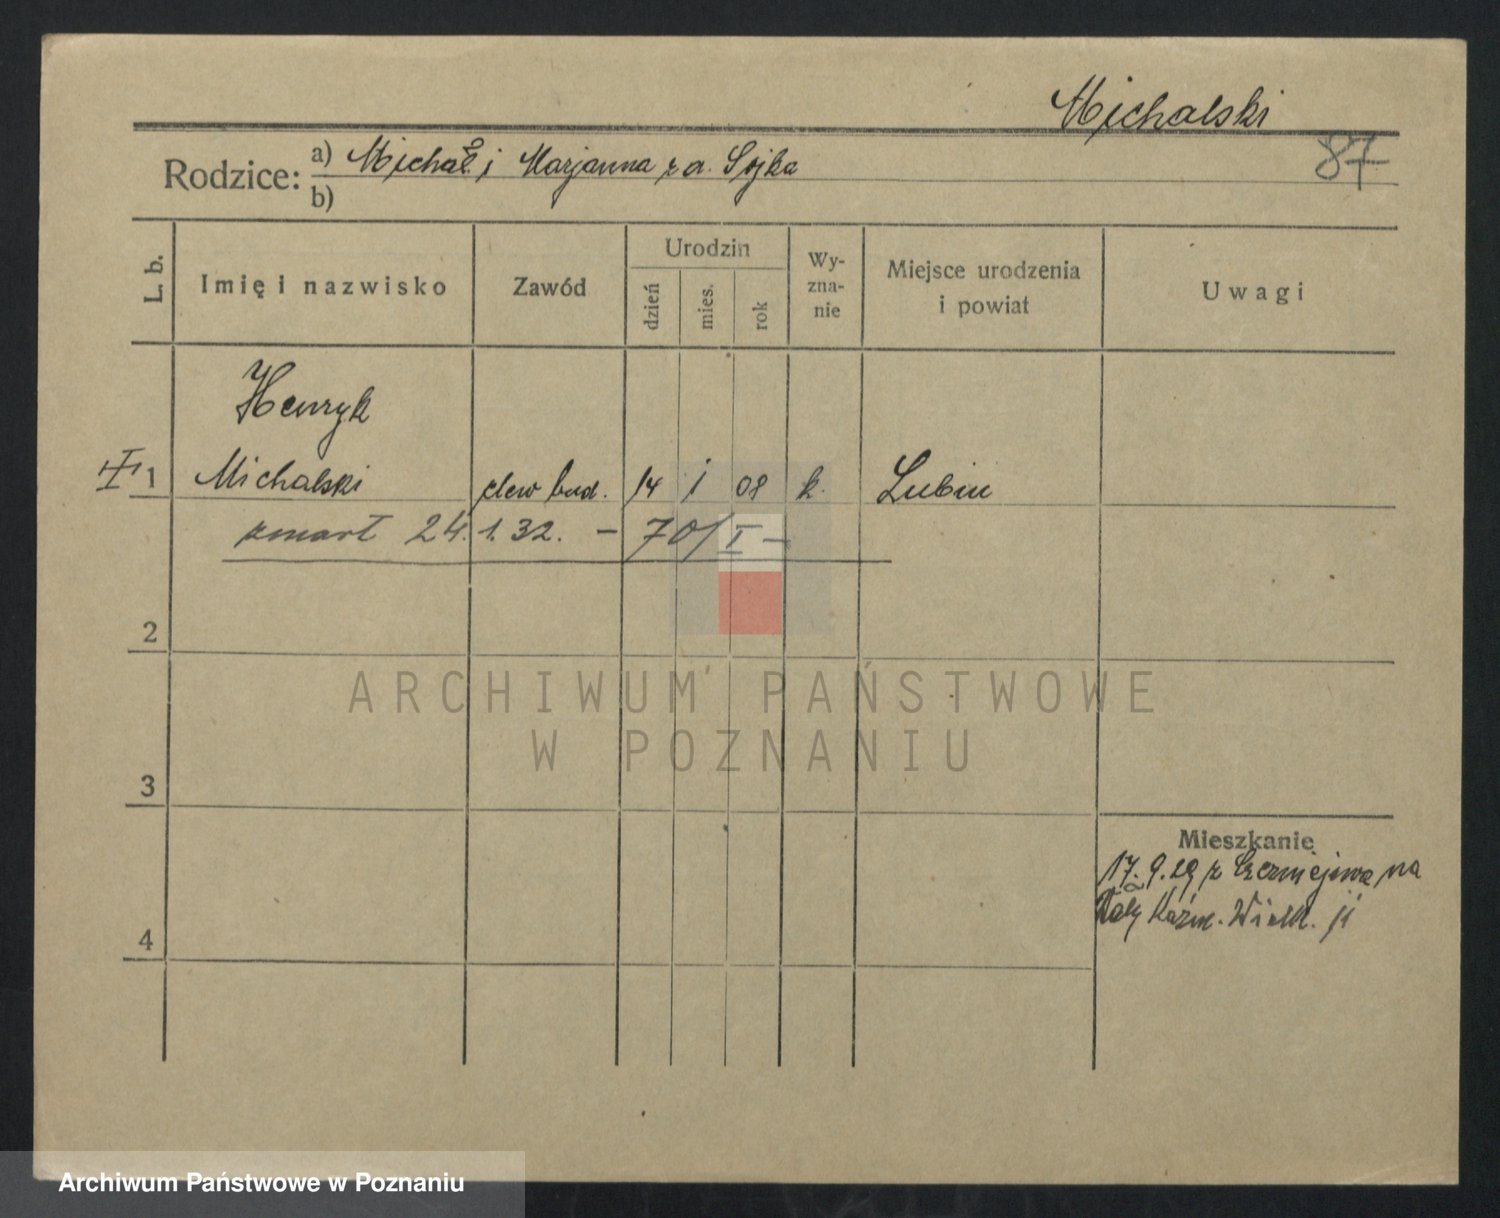 Michalski
87
Rodzice: a) Michał i Marjanna z d. Sojka
b)
L. b.
Imię i nazwisko
Zawód
Urodzin
dzień
mies.
rok
Wy-
zna-
nie
Miejsce urodzenia
i powiat
Uwagi
Henryk
1 Michalski elew bud. 14 I 08 k. Lubin
zmarł 24.1.32. – 70/I –
2
3
4
Mieszkanie
17.9.29 z Czerniejewa na
Kaźm. Wielk.
ARCHIWUM PAŃSTWOWE
W POZNANIU
Archiwum Państwowe w Poznaniu